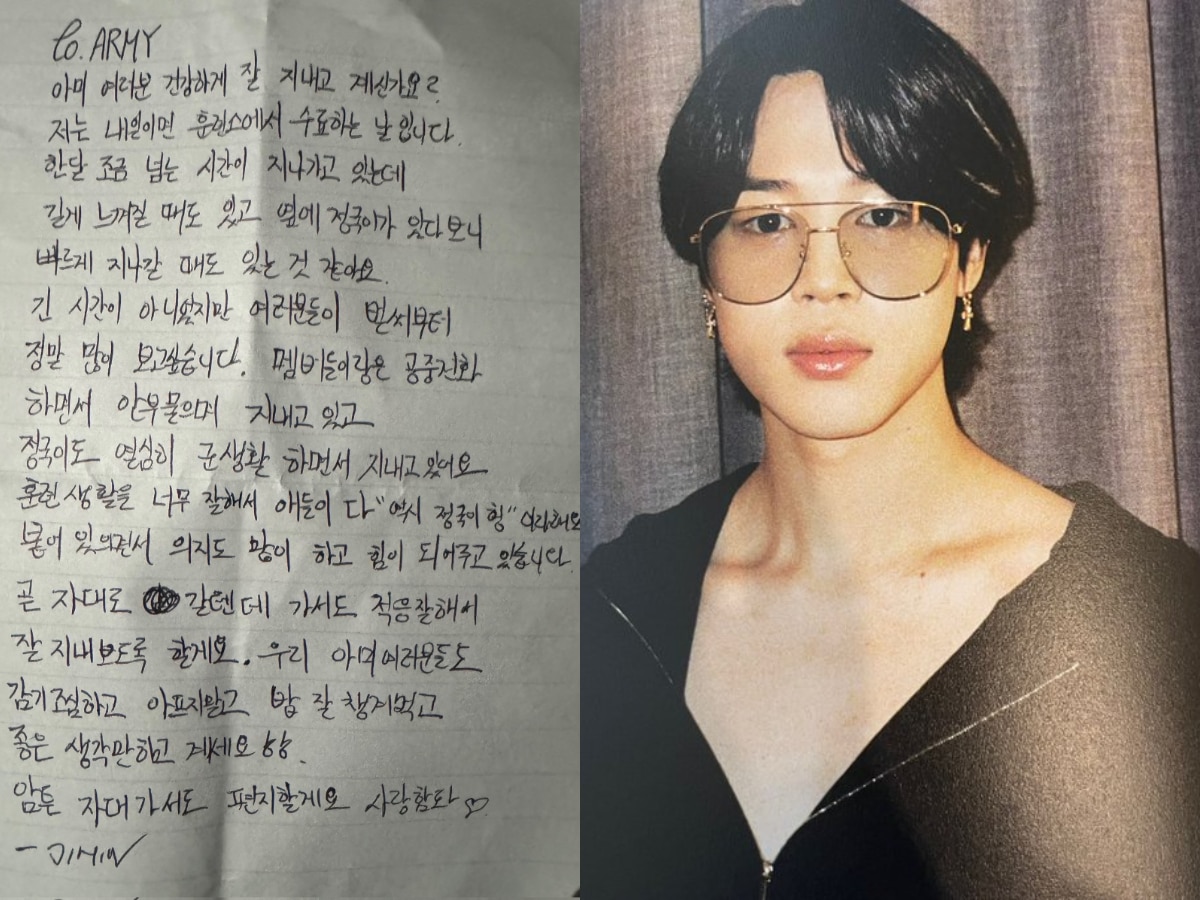 To. ARMY
아미 여러분 건강하게 잘 지내고 계신가요?
저는 내일이면 훈련소에서 수료하는 날 입니다.
한달 조금 넘는 시간이 지나가고 있는데
길게 느껴질 때도 있고 옆에 정국이가 있다보니
빠르게 지나갈 때도 있는 것 같아요.
긴 시간이 아니였지만 여러분들이 벌써부터
정말 많이 보고싶습니다. 멤버들이랑은 공중전화
하면서 안부물으며 지내고 있고
정국이도 열심히 군생활 하면서 지내고 있어요
훈련 생활을 너무 잘해서 애들이 다 "역시 정국이 형" 이라해요
붙어 있으면서 의지도 많이 하고 힘이 되어주고 있습니다.
곧 자대로 갈텐데 가서도 적응잘해서
잘 지내보도록 할게요. 우리 아미여러분들도
감기조심하고 아프지말고 밥 잘 챙겨먹고
좋은 생각만하고 계세요 ㅎㅎ.
암튼 자대 가서도 편지할게요 사랑함돠 ♡
- JIMIN